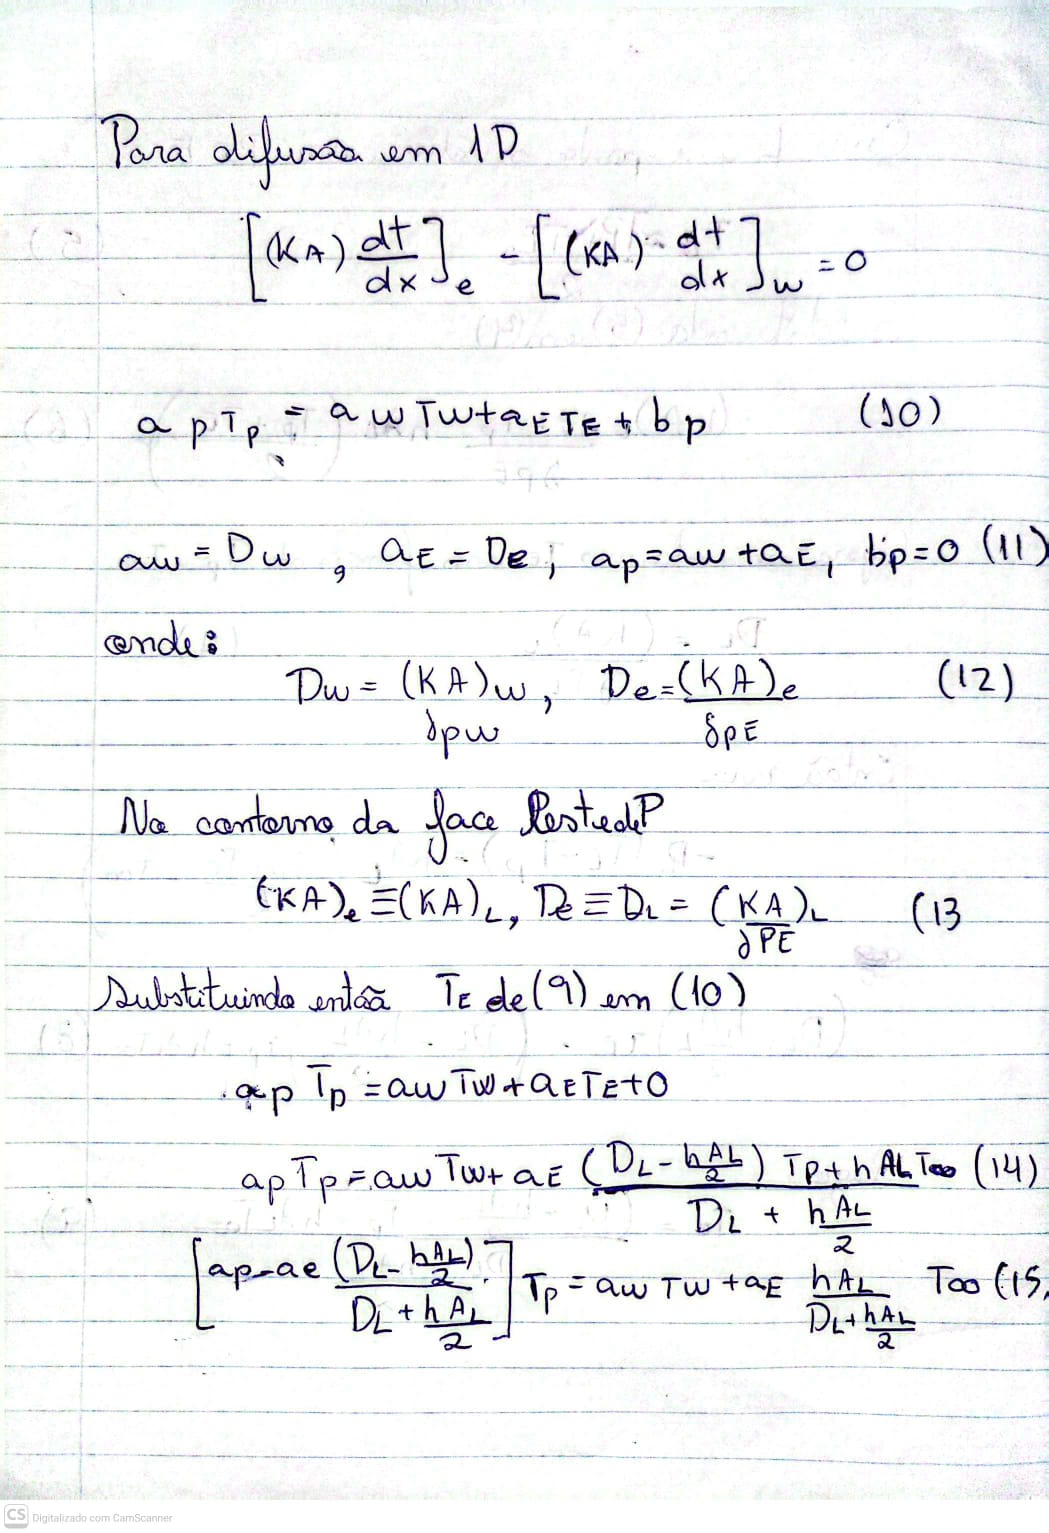 Para difusão em 1D
[(KA) dt/dx]e - [(KA) dt/dx]w = 0
apTp = awTw + aETE + bp (10)
aw = Dw, aE = De; ap = aw + aE, bp = 0 (11)
onde:
Dw = (KA)w/δpw, De = (KA)e/δpE (12)
No contorno da face leste de P
(KA)e ≡ (KA)L, De ≡ DL = (KA)L/∂PE (13
Substituindo então TE de (9) em (10)
ap Tp = aw Tw + aE TE + 0
ap Tp = aw Tw + aE ((DL - hAL/2) Tp + hAL T∞)/(DL + hAL/2) (14)
[ap - ae (DL - hAL/2)/(DL + hAL/2)] Tp = aw Tw + aE hAL/(DL + hAL/2) T∞ (15,
CS Digitalizado com CamScanner